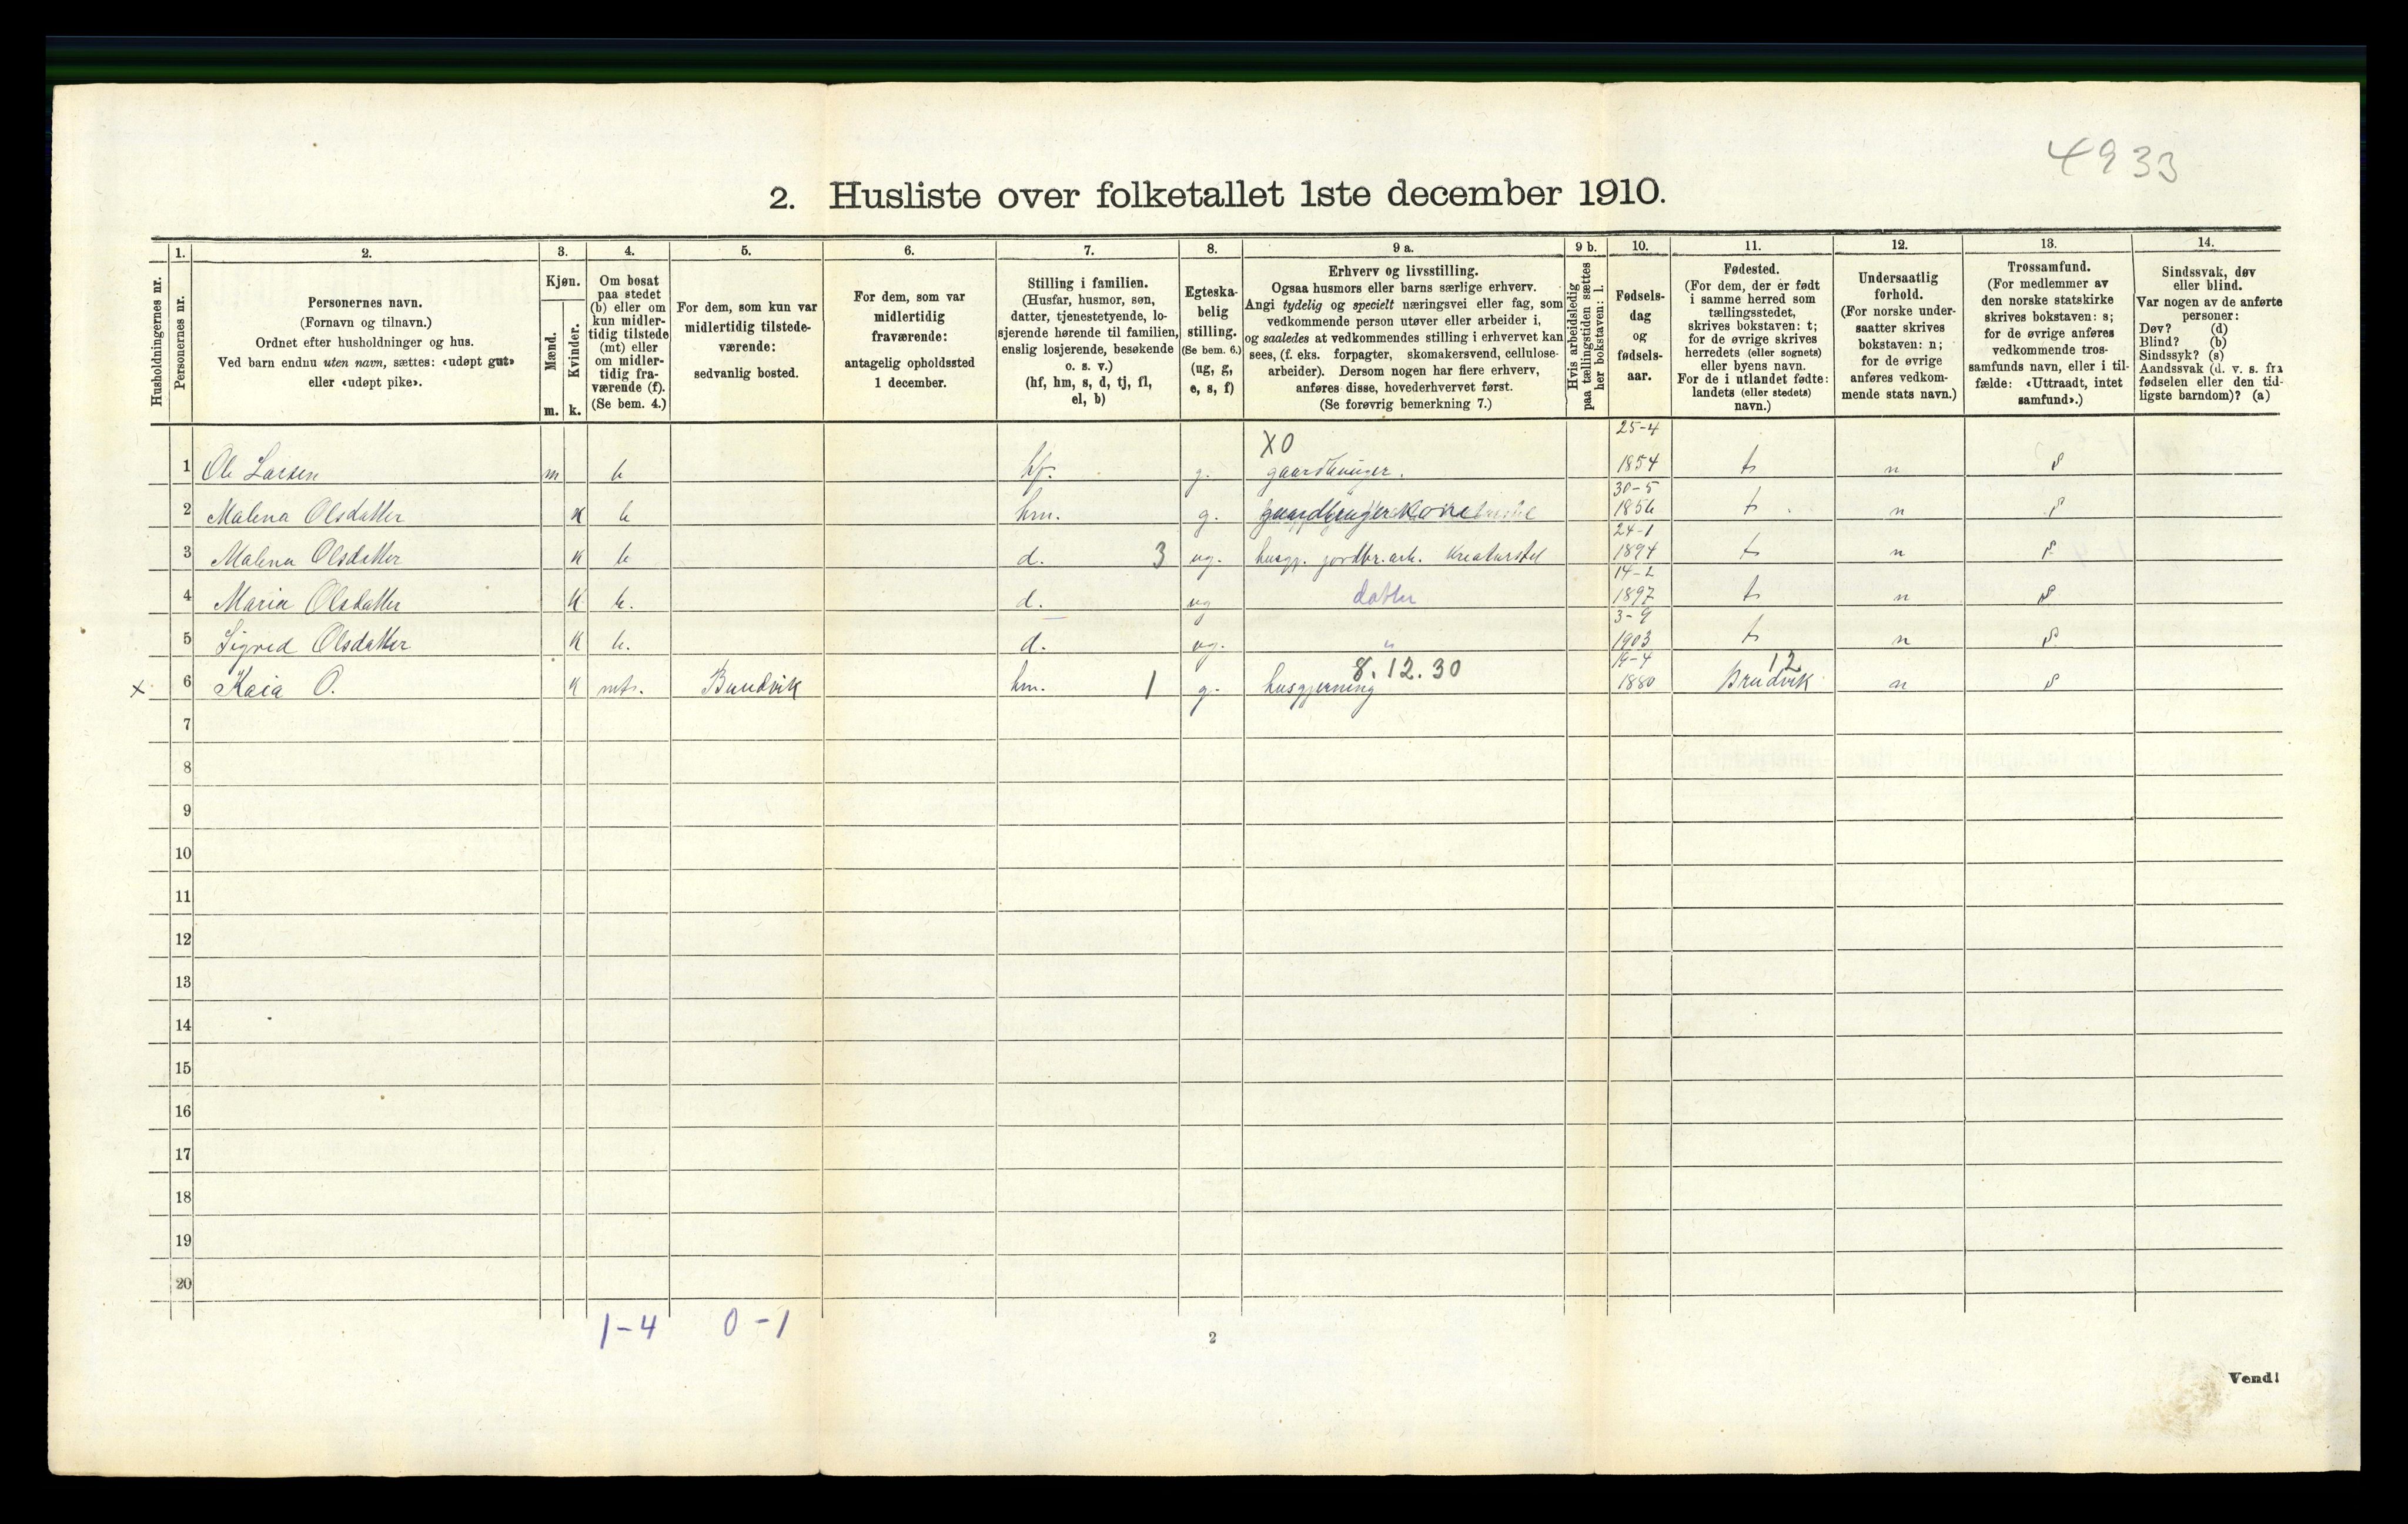 4933
2. Husliste over folketallet 1ste december 1910.
Husholdningernes nr.
1.
Personernes nr.
2.
Personernes navn.
(Fornavn og tilnavn.)
Ordnet efter husholdninger og hus.
Ved barn endnu uten navn, sættes: «udøpt gut»
eller «udøpt pike».
3.
Kjøn.
Mænd.
Kvinder.
m. k.
4.
Om bosat
paa stedet
(b) eller om
kun midler-
tidig tilstede
(mt) eller
om midler-
tidig fra-
værende (f).
(Se bem. 4.)
5.
For dem, som kun var
midlertidig tilstede-
værende:
sedvanlig bosted.
6.
For dem, som var
midlertidig
fraværende:
antagelig opholdssted
1 december.
7.
Stilling i familien.
(Husfar, husmor, søn,
datter, tjenestetyende, lo-
sjerende hørende til familien,
enslig losjerende, besøkende
o. s. v.)
(hf, hm, s, d, tj, fl,
el, b)
8.
Egteska-
belig
stilling.
(Se bem. 6.)
(ug, g,
e, s, f)
9 a.
Erhverv og livsstilling.
Ogsaa husmors eller barns særlige erhverv.
Angi tydelig og specielt næringsvei eller fag, som
vedkommende person utøver eller arbeider i,
og saaledes at vedkommendes stilling i erhvervet kan
sees, (f. eks. forpagter, skomakersvend, cellulose-
arbeider). Dersom nogen har flere erhverv,
anføres disse, hovederhvervet først.
(Se forøvrig bemerkning 7.)
9 b.
Hvis arbeidsledig
paa tællingstiden sættes
her bokstaven: l.
10.
Fødsels-
dag
og
fødsels-
aar.
11.
Fødested.
(For dem, der er født
i samme herred som
tællingsstedet,
skrives bokstaven: t;
for de øvrige skrives
herredets (eller sognets)
eller byens navn.
For de i utlandet fødte:
landets (eller stedets)
navn.)
12.
Undersaatlig
forhold.
(For norske under-
saatter skrives
bokstaven: n;
for de øvrige
anføres vedkom-
mende stats navn.)
13.
Trossamfund.
(For medlemmer av
den norske statskirke
skrives bokstaven: s;
for de øvrige anføres
vedkommende tros-
samfunds navn, eller i til-
fælde: «Uttraadt, intet
samfund».)
14.
Sindssvak, døv
eller blind.
Var nogen av de anførte
personer:
Døv? (d)
Blind? (b)
Sindssyk? (s)
Aandssvak (d. v. s. fra
fødselen eller den tid-
ligste barndom)? (a)
X0 25-4
1 Ole Larsen m b hf. g. gaardbruger. 1854 t n s
30-5
2 Malena Olsdatter k b hm. g. gaardbrugerkone 1856 t n s
24-1
3 Malena Olsdatter k b d. 3 ug. husgj. jordbr.arb. Kreaturstel 1894 t n s
14-2
4 Maria Olsdatter k b. d. ug datter 1897 t n s
3-9
5 Sigrid Olsdatter k b. d. ug. " 1903 t n s
8.12.30 19-4 12
x 6 Kaia O. k mt. Bruvik hm. 1 g. husgjerning 1880 Bruvik n s
7
8
9
10
11
12
13
14
15
16
17
18
19
20
1-4 0-1
2
Vend!